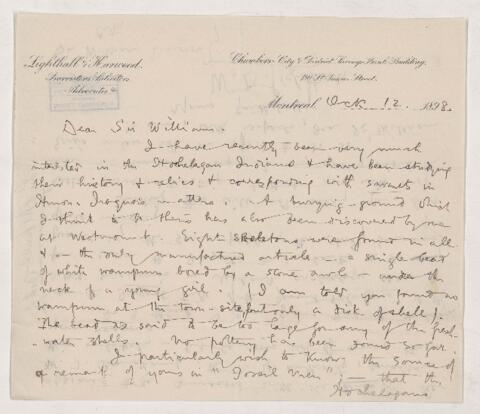 Lighthall & Harwood.
Barristers, Solicitors
Advocates &c
Chambers: City & District Savings Bank Building,
180 St. James Street.
Montreal Oct. 12. 1898.
Dear Sir William.
I have recently been very much
interested in the Hochelagan Indians & have been studying
their history & relics & corresponding with savants in
Huron-Iroquois matters. A burying-ground which
I think is theirs has also been discovered by me
at Westmount. Eight skeletons were found in all
& the only manufactured article – a single bead
of white wampum bored by a stone awl – under the
neck of a young girl. (I am told you found no
wampum at the town-site, but only a disk of shell).
The bead is said to be too large for any of the fresh-
water shells. No pottery has been found so far.
I particularly wish to know the source of
a remark of yours in "Fossil Men" – that the
Hochelagans